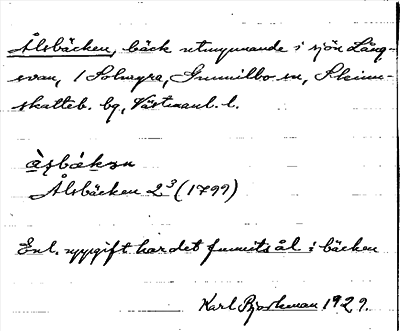 Ålsbäcken, bäck utmynnande i sjön Lång-
svan, i Solmyra, Gunnilbo sn, Skinn-
skatteb. bg, Västmanl. l.
àșbǽkǝn
Ålsbäcken 2³ (1799)
Enl. uppgift har det funnits ål i bäcken
Karl Björkman 1929.